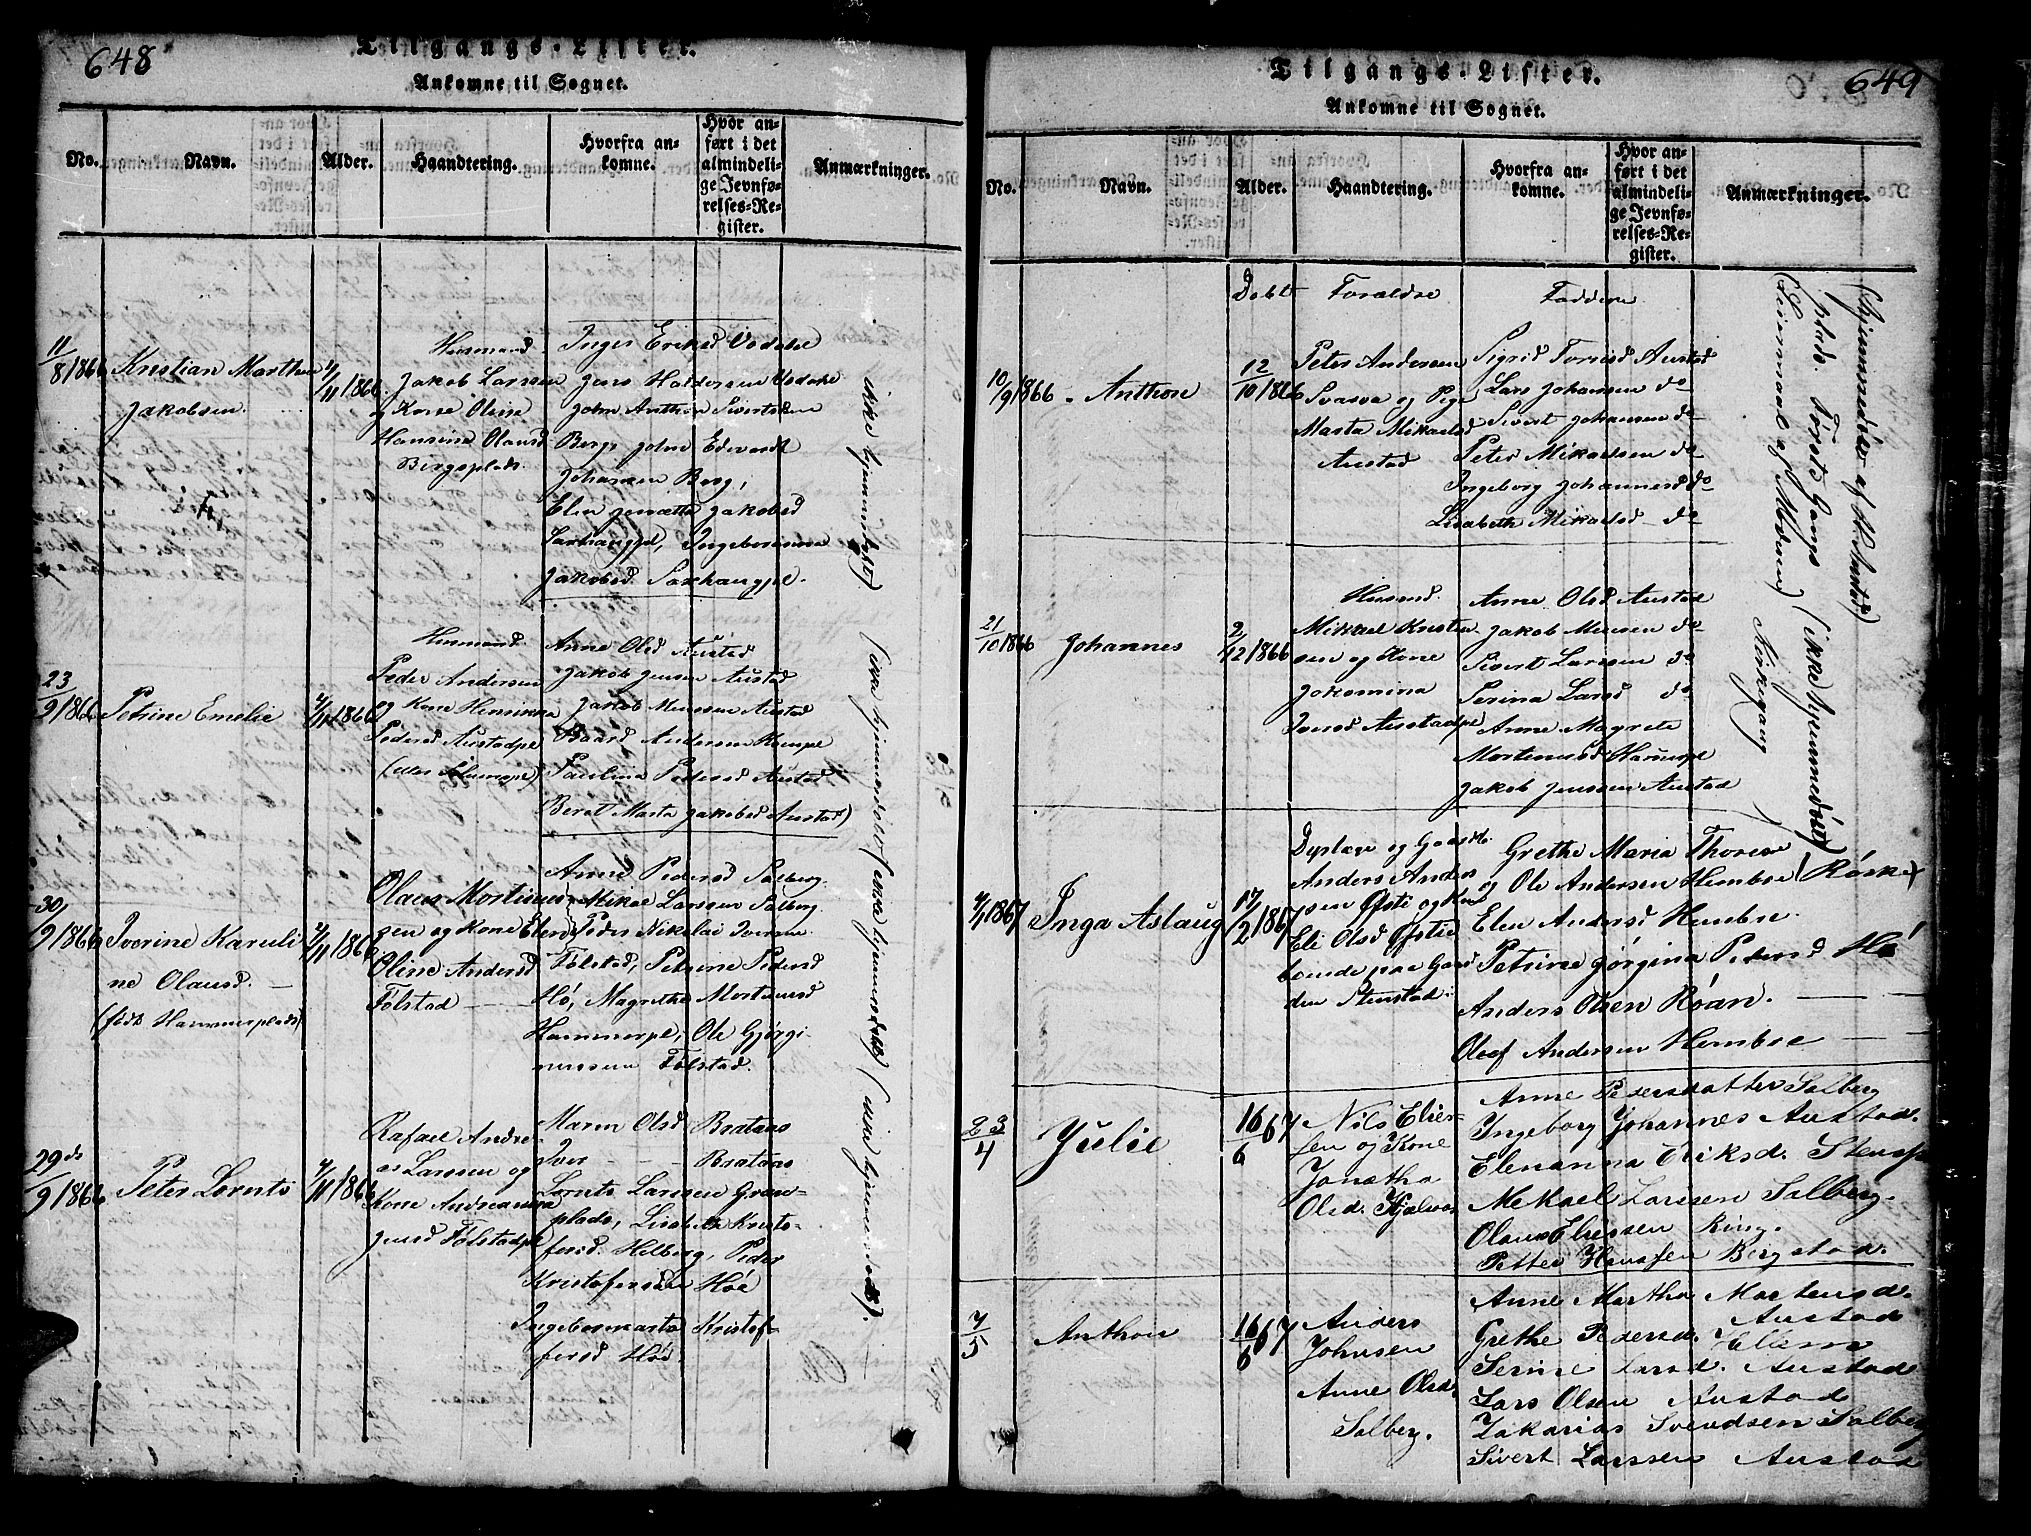 648
Tilgangs-Lister.
Ankomne til Sognet.
No.
Navn.
Alder.
Haandtering.
Hvorfra an-
komne.
Hvor an-
ført i det
almindeli-
ge Jevnfø-
relses-Re-
gister.
Anmærkninger.
11/8 1866
Kristian Marthin
Jakobsen.
4/11 1866
Huusmand
Jakob Larssen
og Kone Oline
Hansine Olausd.
Bergsplads.
Johan Anthon Sivertsen
Berg, John Edevardt
Johansen Berg,
Elen Jakobsd
Ingeborganna
Jakobsd.
(ikke hjemmedøbt)
23/9 1866
Petrine Emelie
4/11 1866
Huusmand
Peder Andersen
og Kone Henrikka
Pedersd Austadpl
Anne Olsd Austad
Jakob Jensen Austad
Jakob Monssen Austad
Baard Andersen
Paulina Pedersd Austad
Beret Marta Jakobsd Austad)
(ikke hjemmedøbt)
30/9 1866
Iverine Karoli
ne Olausd.
(født Hammerplads)
4/11 1866
Olaus Mortinus
sen og Kone Elen
Oline Andersd
Følstad
Anne Pedersd Salberg
Mikal Larssen Salberg
Peder Nikolai
Følstad, Petrine Pedersd
Hó, Magrethe Mortinusd
Hammerpl, Ole Gjørgi
nussen Følstad.
(ikke hjemmedøbt)
29de/9 1866
Peter Lornts
4/11 1866
Rafael Andre-
as Larssen og
Kone Andreanna
Jensd Følstadpl
Maren Olsd Brataas
Iver - - Brataas
Lornts Larssen Gran-
plads, Lisabeth Kristo-
fersd. Helberg, Peder
Kristofersen Hóe
Ingebormarta Kristof-
fersd Hóe.
(ikke hjemmedøbt).
649
Tilgangs-Lister.
Ankomne til Sognet.
No.
Navn.
Alder.
Haandtering.
Hvorfra an-
komne.
Hvor an-
ført i det
almindeli-
ge Jevnfø-
relses-Re-
gister.
Anmærkninger.
Døbt
Forældre
Faddere
10/9 1866
Anthon
12/10 1866
Peter Andersen
Svarva og Pige
Marta Mikaelsd
Austad
Sigrid Austad
Lars Johansen do
Sivert Johansen do
Peter Mikaelsen do
Ingeborg Johannesd do
Lisabeth Mikaelsd do
(hjemmedøbt af Austad)
Første Gangs
Leiermaal af Moderen)
21/10 1866
Johannes
2/12 1866
Huusmd.
Mikkael Kristen
sen og Kone
Jakomina
Iversd Austadpl
Anne Olsd Austad
Jakob Monsen do
Sivert Larssen do
Serina Larsd do
Anne Magrete
Mortinusd
Jakob Jenssen Austad
(ikke hjemmedøbt)
Kirkegang
4/1 1867
Inga Aslaug
17/2 1867
Dyrlæge og Gaardb.
Anders Ander
sen Østi og Kone
Eli Olsd Østi
boende paa Gaar
den Stenstad.
Grethe Maria Thorese
og Ole Andersen Hembre (Røske)
Elen Andersd Hembre.
Petrine Gørgina Pedersd Hó
Anders Olsen Róan.
Oluf Andersen Hembre
23/4
Julie
16/6 67
Nils Elies-
sen og Kone
Jonetha
Olsd.
Anne Pedersdatter Salberg
Ingeborg Johannes Austad.
Elenanna Eriksd.
Mekael Larssen Salberg.
Olaus Eliessen Ring.
Petter Hanssen Bergstad.
7/5
Anthon
16/6 67
Anders
Johnsen
Anne Olsd.
Salberg.
Anne Martha Mortensd.
Austad
Grethe Pedersd.
Serine Larsd. Austad
Lars Olsen Austad
Zakarias Svendsen Salberg
Sivert Larssen Austad